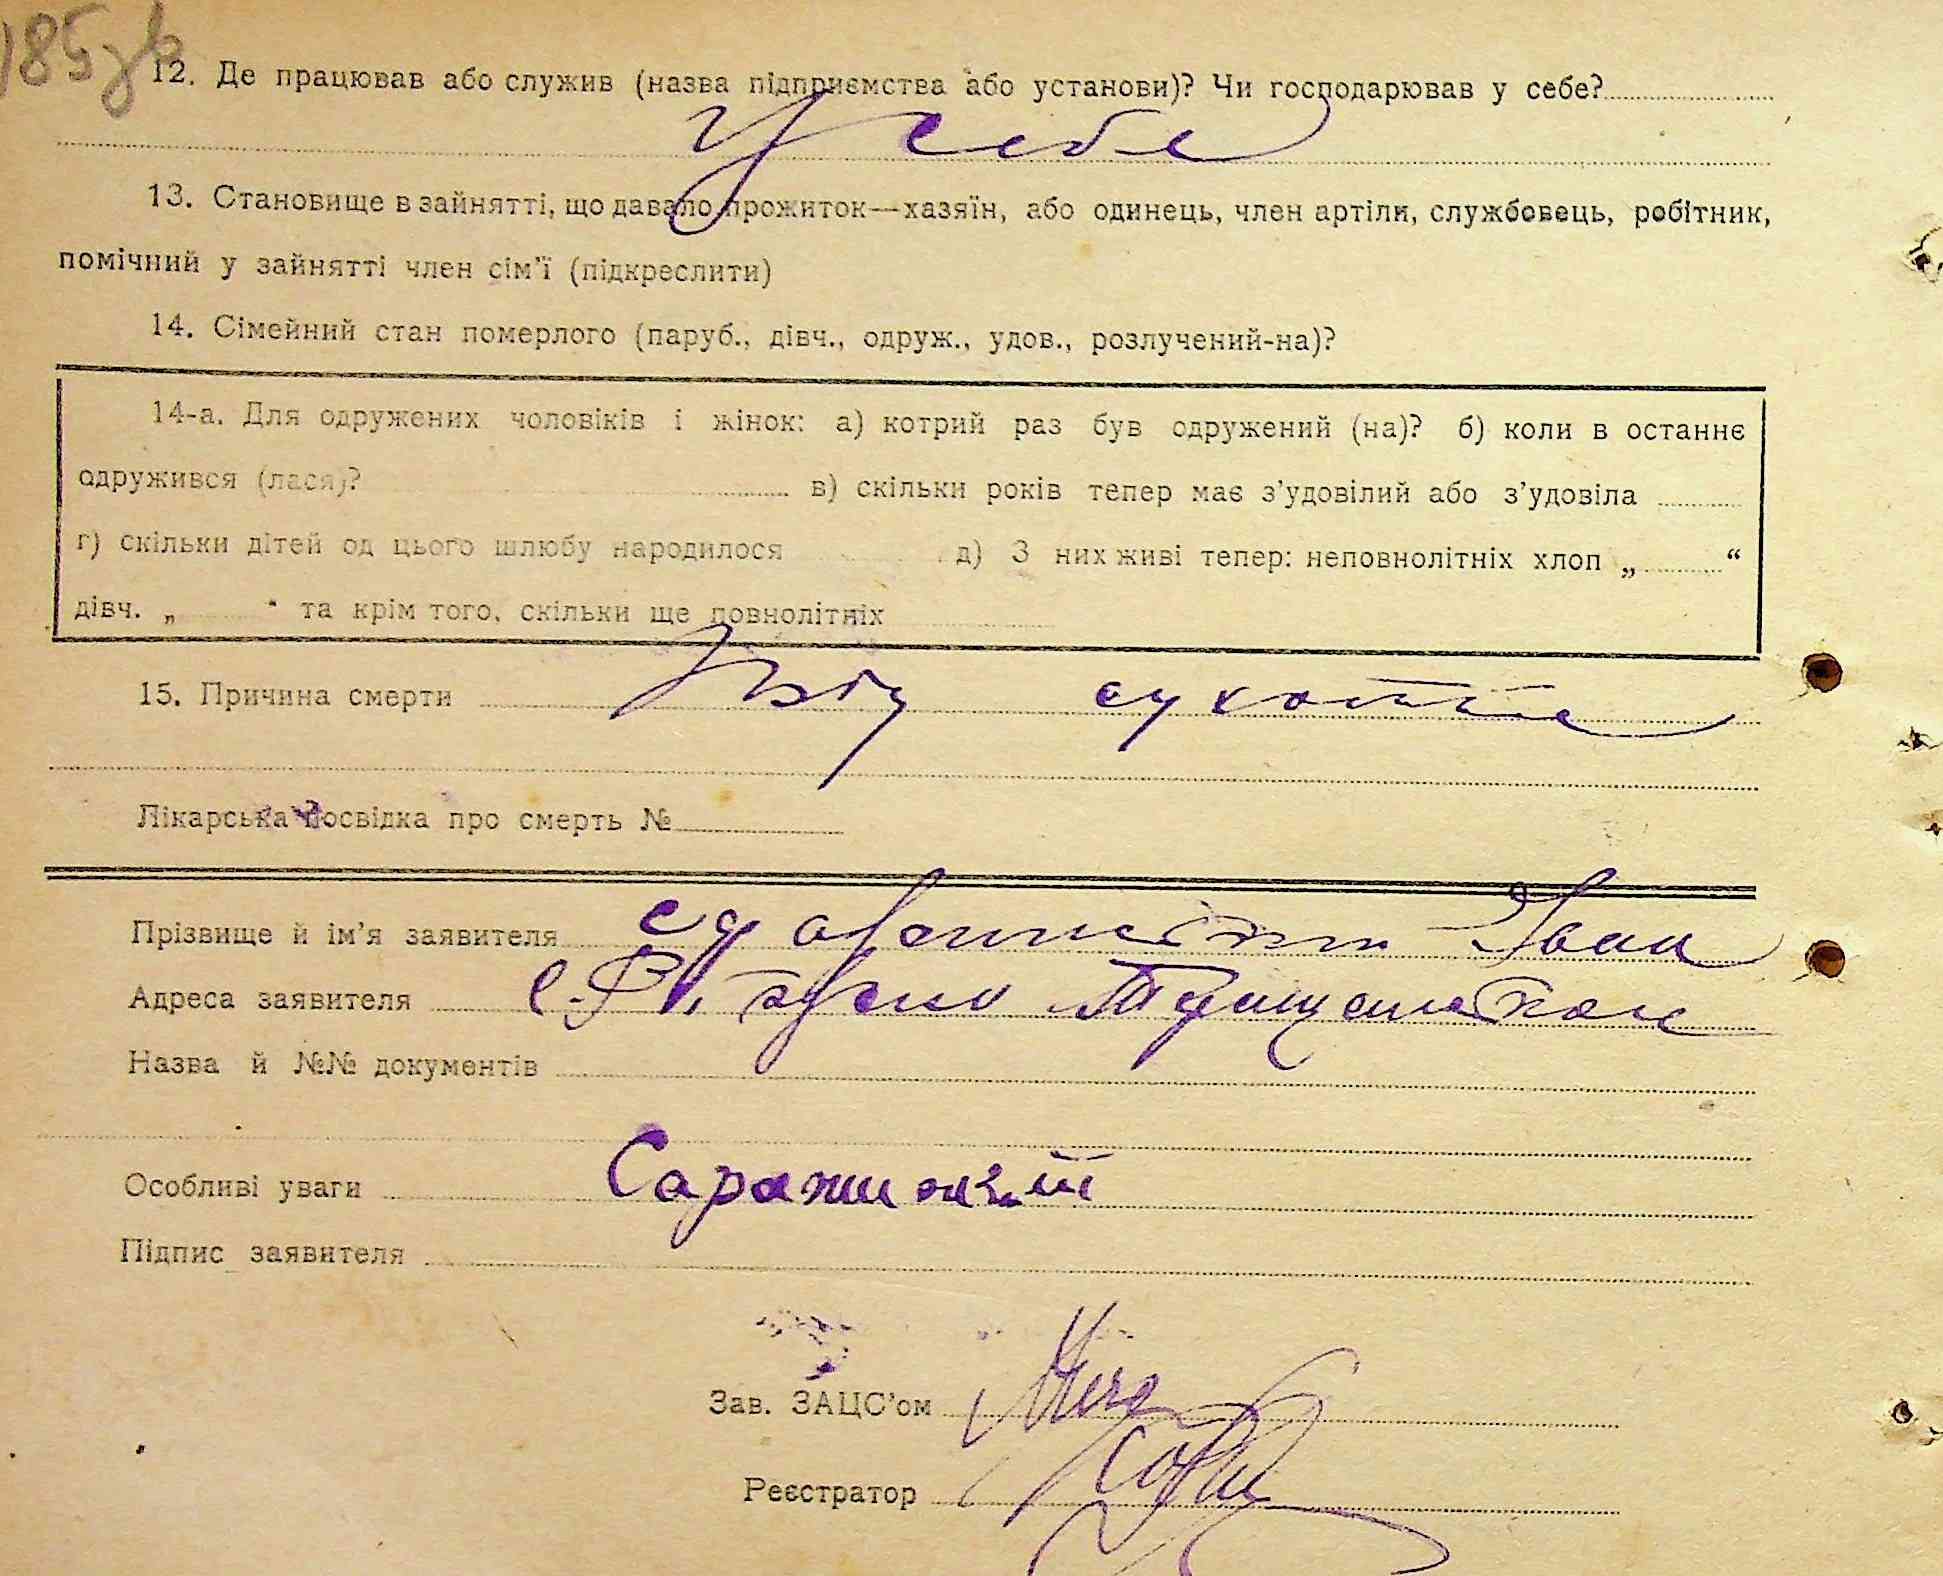 185зв
12. Де працював або служив (назва підприємства або установи)? Чи господарював у себе?
У себе
13. Становище в зайнятті, що давало прожиток—хазяїн, або одинець, член артіли, службовець, робітник,
помічний у зайнятті член сім'ї (підкреслити)
14. Сімейний стан померлого (паруб., дівч., одруж., удов., розлучений-на)?
14-а. Для одружених чоловіків і жінок: а) котрий раз був одружений (на)? б) коли в останнє
одружився (лася)? в) скільки років тепер має з'удовілий або з'удовіла
г) скільки дітей од цього шлюбу народилося д) З них живі тепер: неповнолітніх хлоп „ “
дівч. „ “ та крім того, скільки ще повнолітніх
15. Причина смерти Від сухоти
Лікарська посвідка про смерть №
Прізвище й ім'я заявителя Іван
Адреса заявителя с.
Назва й №№ документів
Особливі уваги
Підпис заявителя
Зав. ЗАЦС'ом
Реєстратор